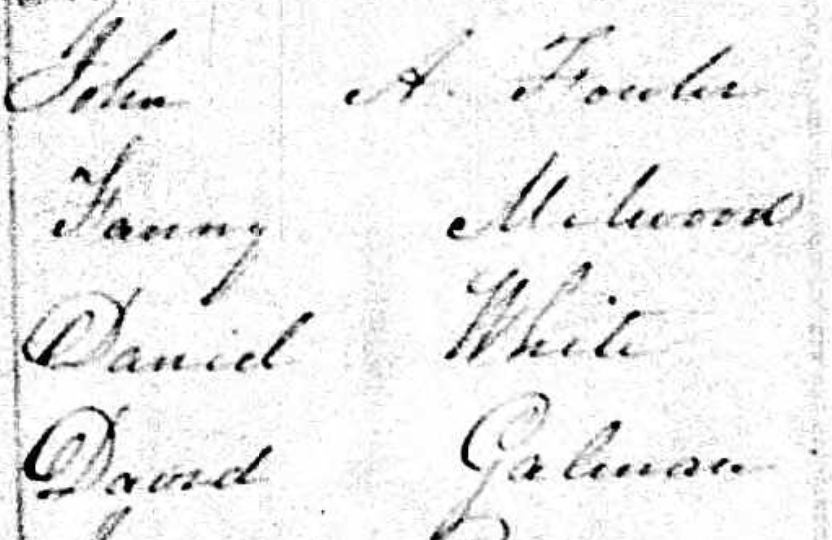 John A. Fowler
Fanny Milwood
Daniel White
David Galman